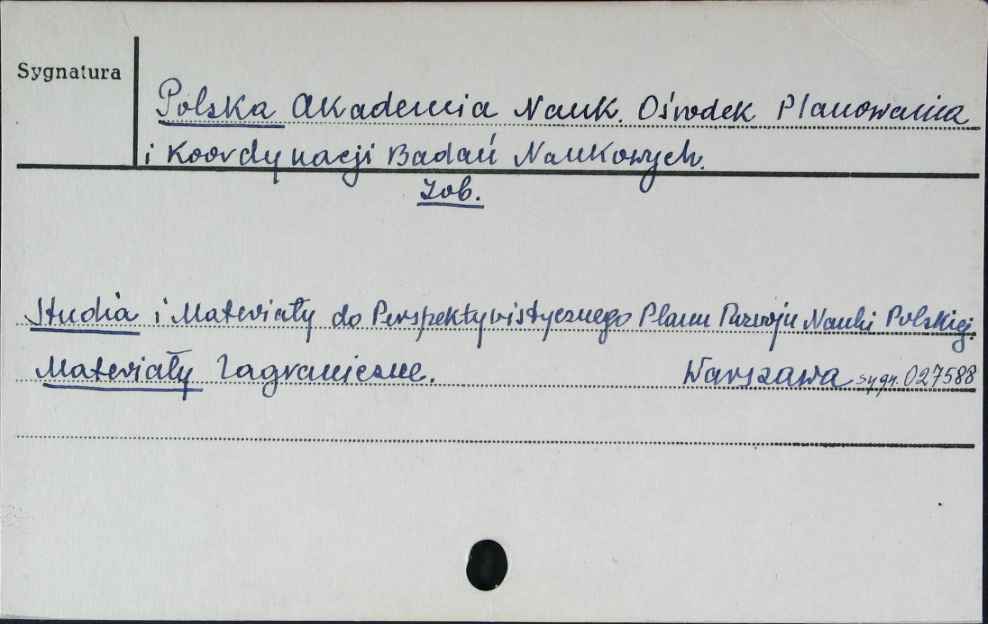 Sygnatura
Polska Akademia Nauk. Ośrodek Planowania
i Koordynacji Badań Naukowych.
Zob.
Studia i Materiały do Perspektywistycznego Planu Rozwoju Nauki Polskiej.
Materiały Zagraniczne. Warszawa sygn. 027588